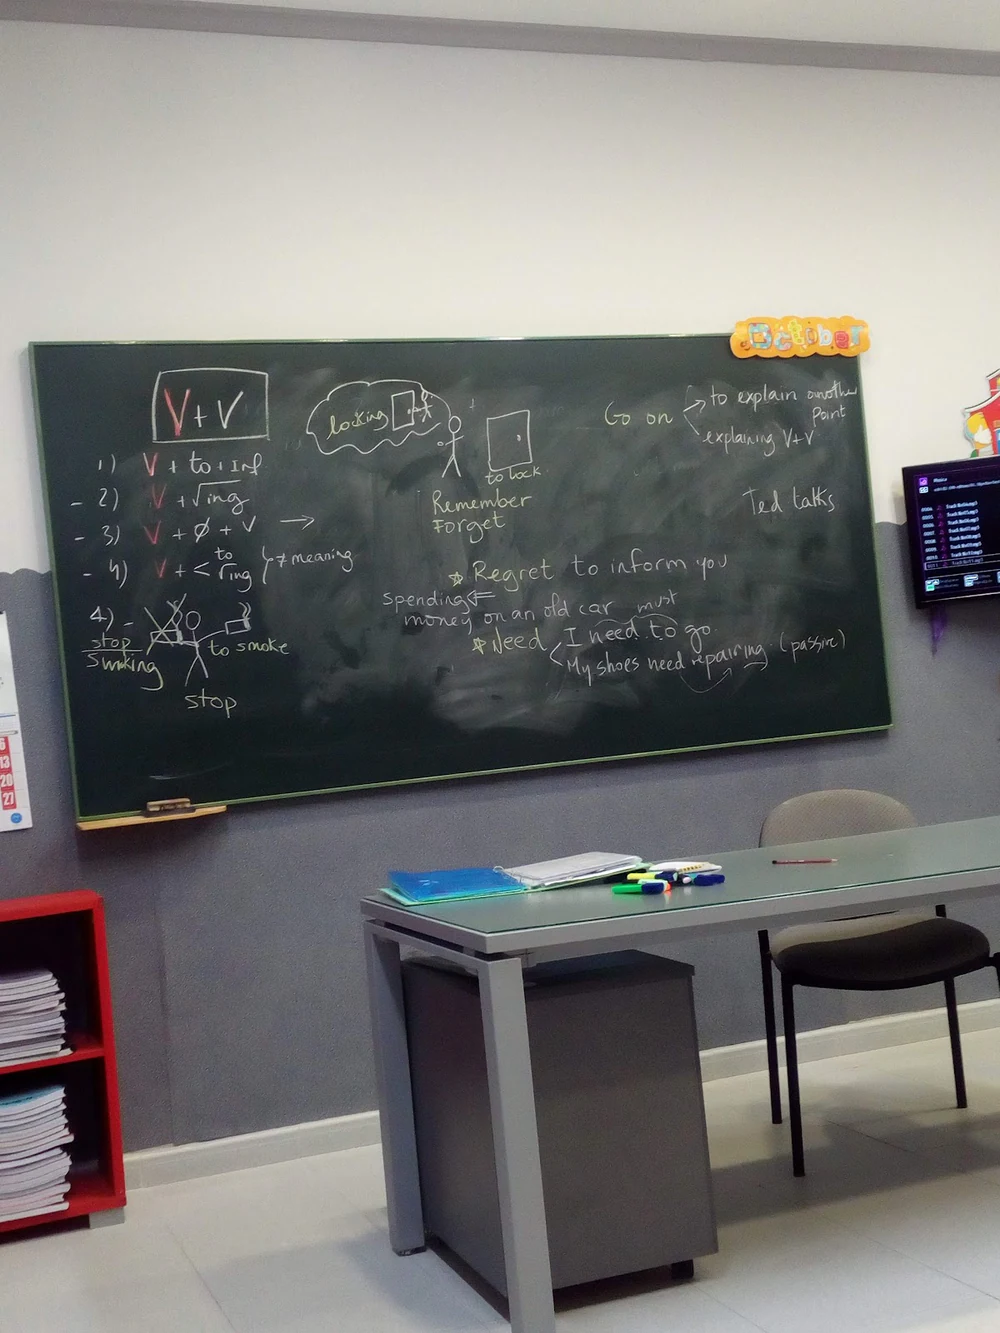 October
V + V
1) V + to + Inf
- 2) V + √ing
- 3) V + ø + V →
- 4) V + < to
√ing } ≠ meaning
4) -
stop
smoking
to smoke
stop
locking
to lock
Remember
Forget
Go on
to explain another
Point
explaining V+V
Ted talks
Regret to inform you
spending
money on an old car
must
Need
I need to go.
My shoes need repairing. (passive)
6
13
20
27